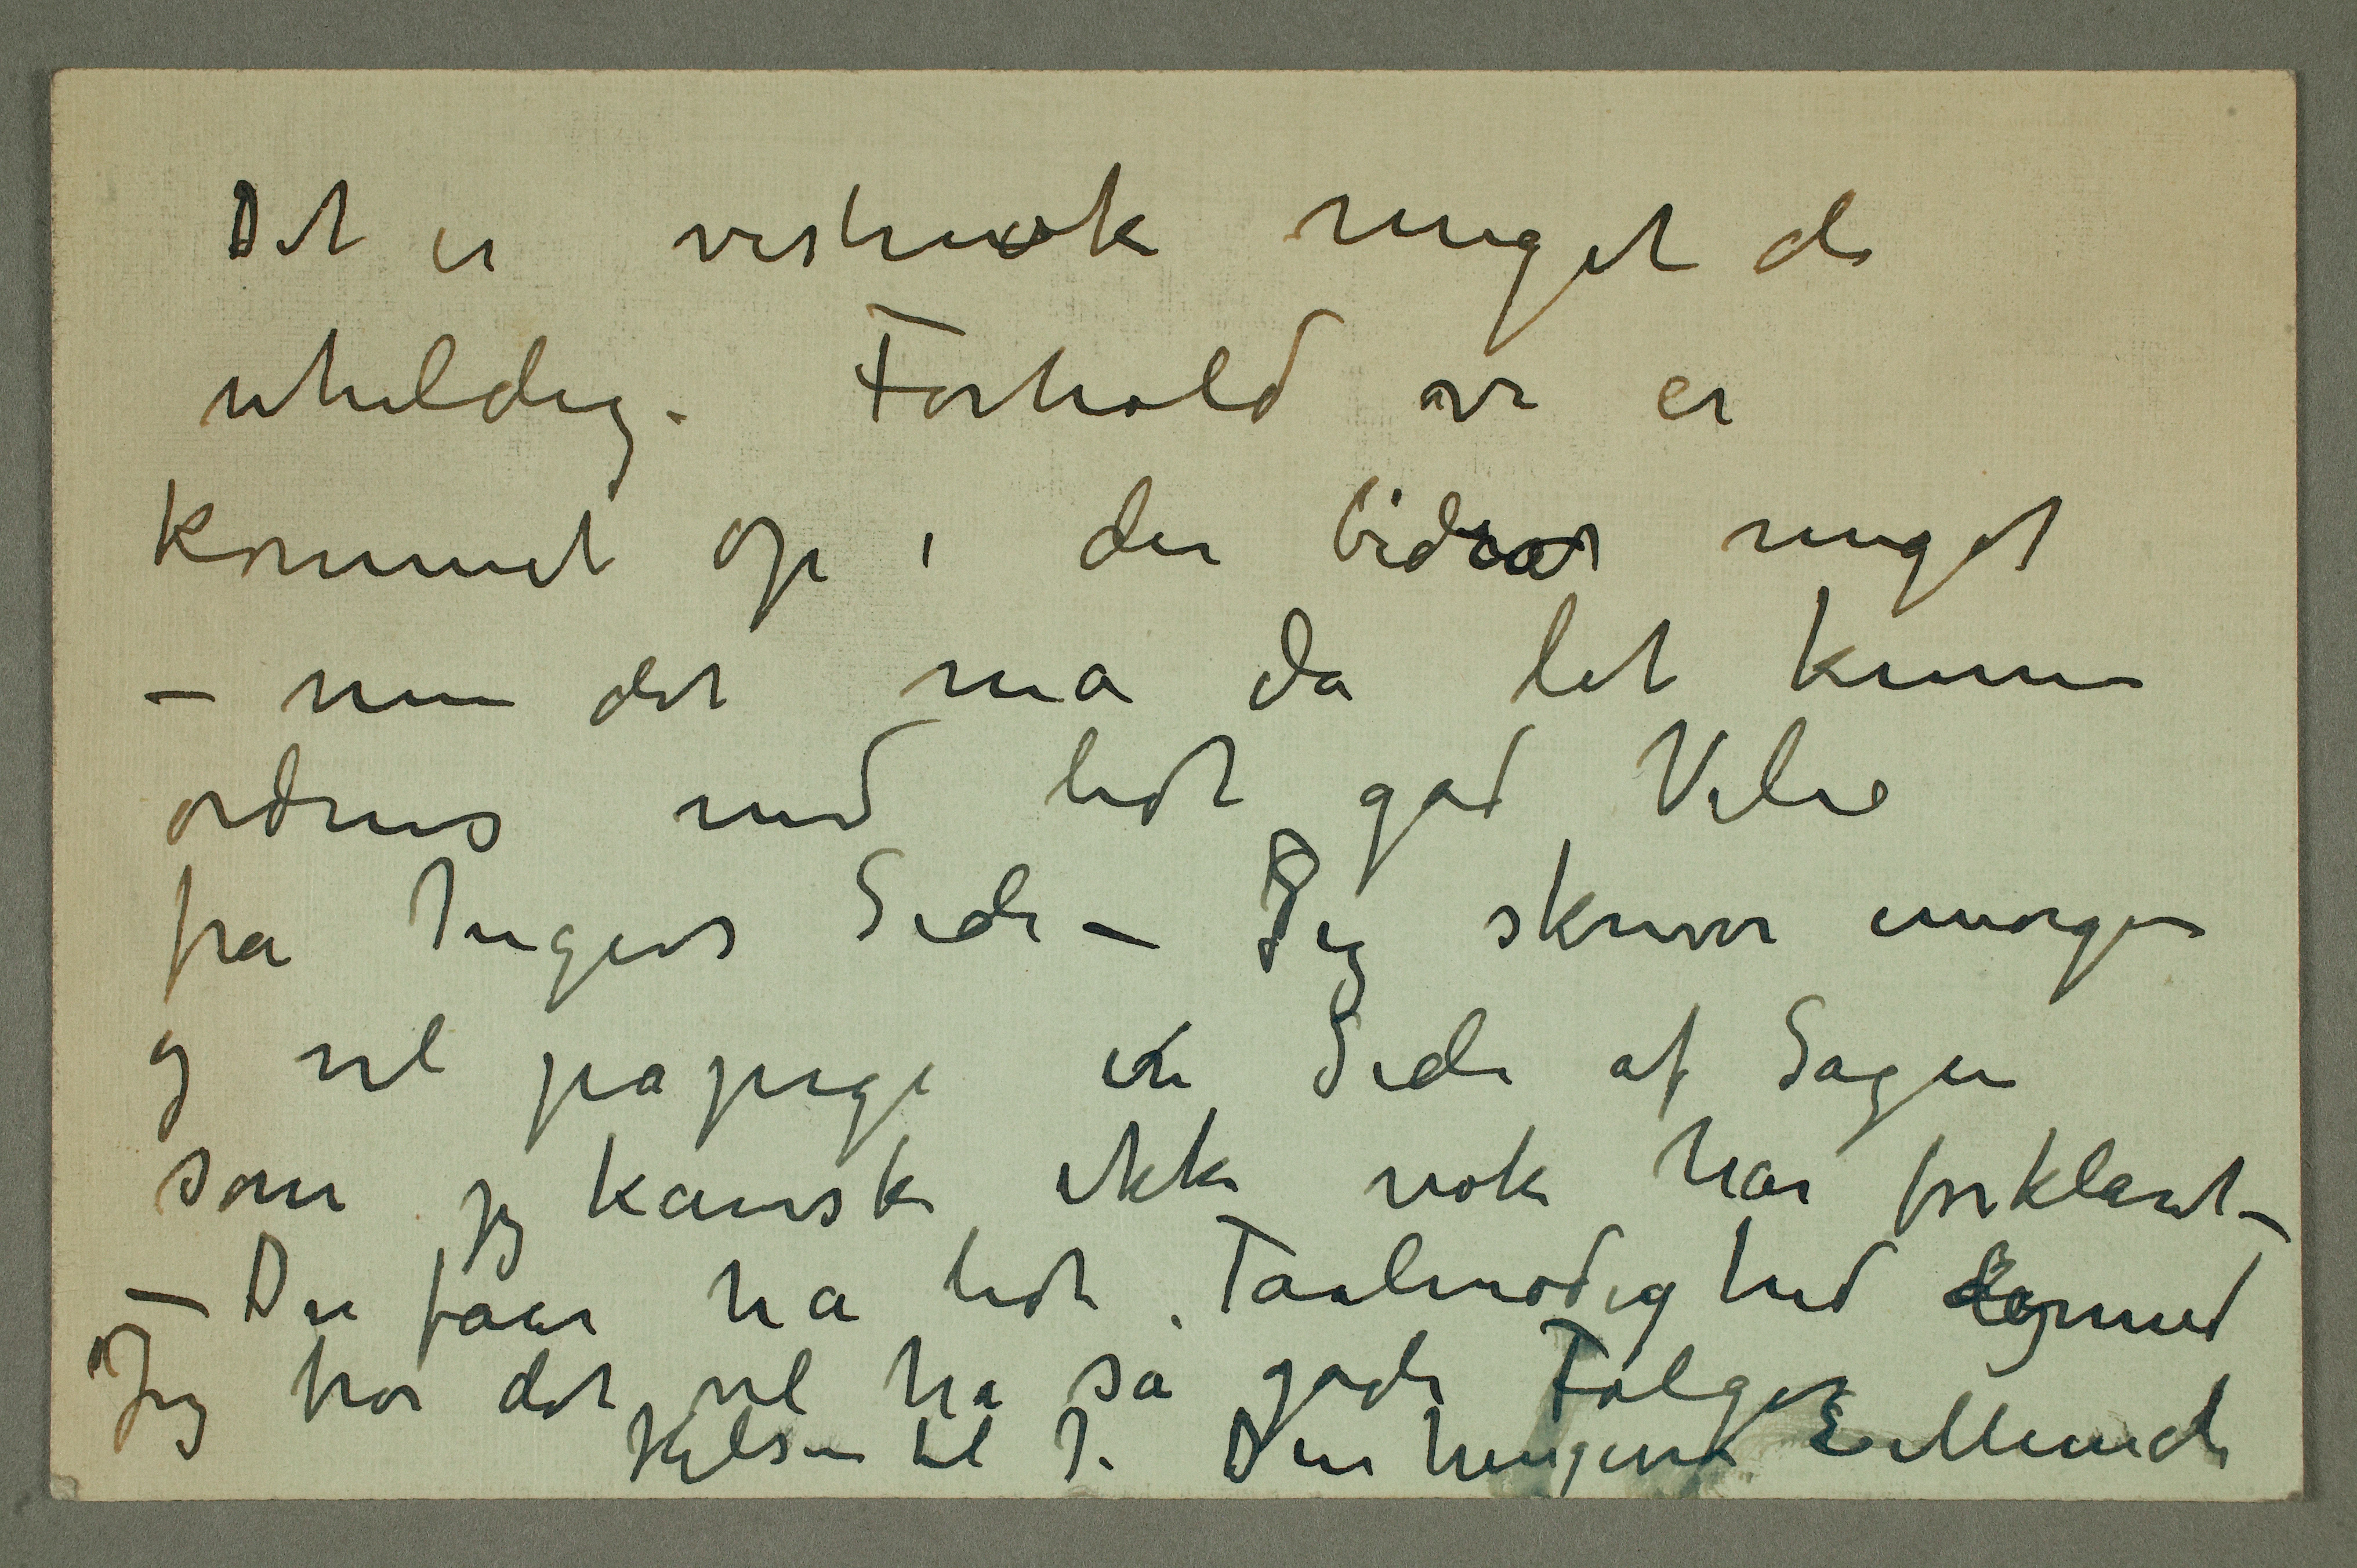 Det er vistnok meget de
uheldige Forhold vi er
kommet op i der bidrar meget
– men det må da let kunne
ordnes med lidt god Vilie
fra Ingers Side – Jeg skriver imorgen
og vil påpege én Side af Sagen
som jeg kanske ikke nok har forklaret –
– Du faar ha lidt Taalmodighed dermed
Jeg tror det vil ha så gode Følger
Hilsen til I. Din hengivne E Munch